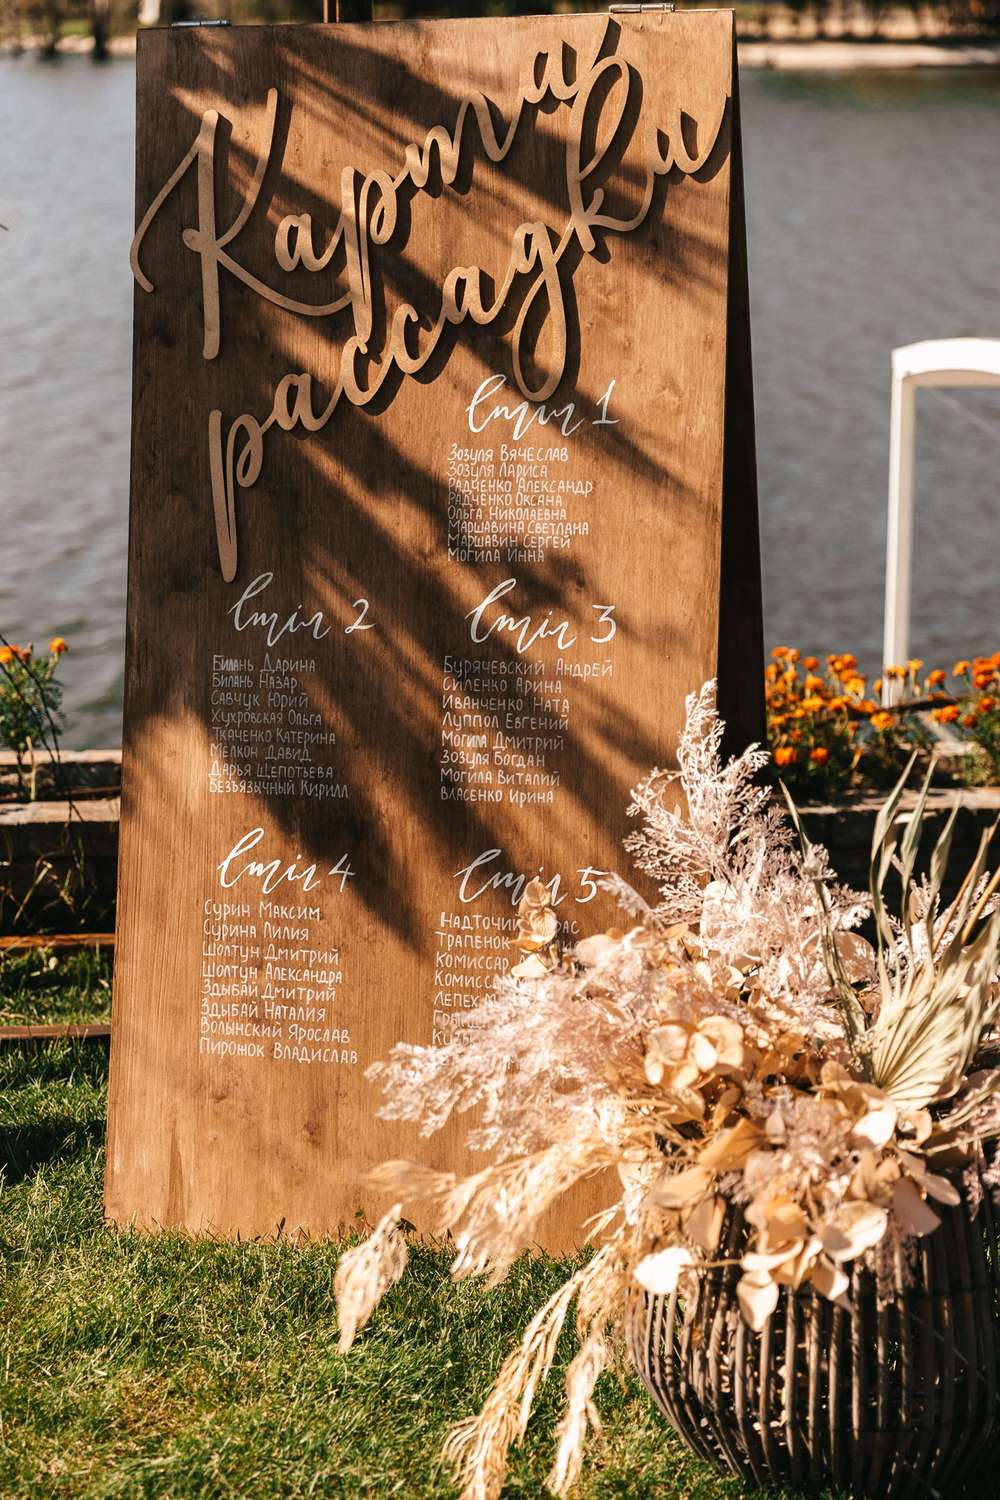 Карта
рассадки
Стіл 1
Зозуля Вячеслав
Зозуля Лариса
Радченко Александр
Радченко Оксана
Ольга Николаевна
Маршавина Светлана
Маршавин Сергей
Могила Инна
Стіл 2
Билань Дарина
Билань Назар
Савчук Юрий
Хухровская Ольга
Ткаченко Катерина
Мелкон Давид
Дарья Щепотьева
Безъязычный Кирилл
Стіл 3
Бурячевский Андрей
Силенко Арина
Иванченко Ната
Луппол Евгений
Могила Дмитрий
Зозуля Богдан
Могила Виталий
Власенко Ирина
Стіл 4
Сурин Максим
Сурина Лилия
Шолтун Дмитрий
Шолтун Александра
Здыбай Дмитрий
Здыбай Наталия
Волынский Ярослав
Пиронок Владислав
Стіл 5
Надточий
Трапенок